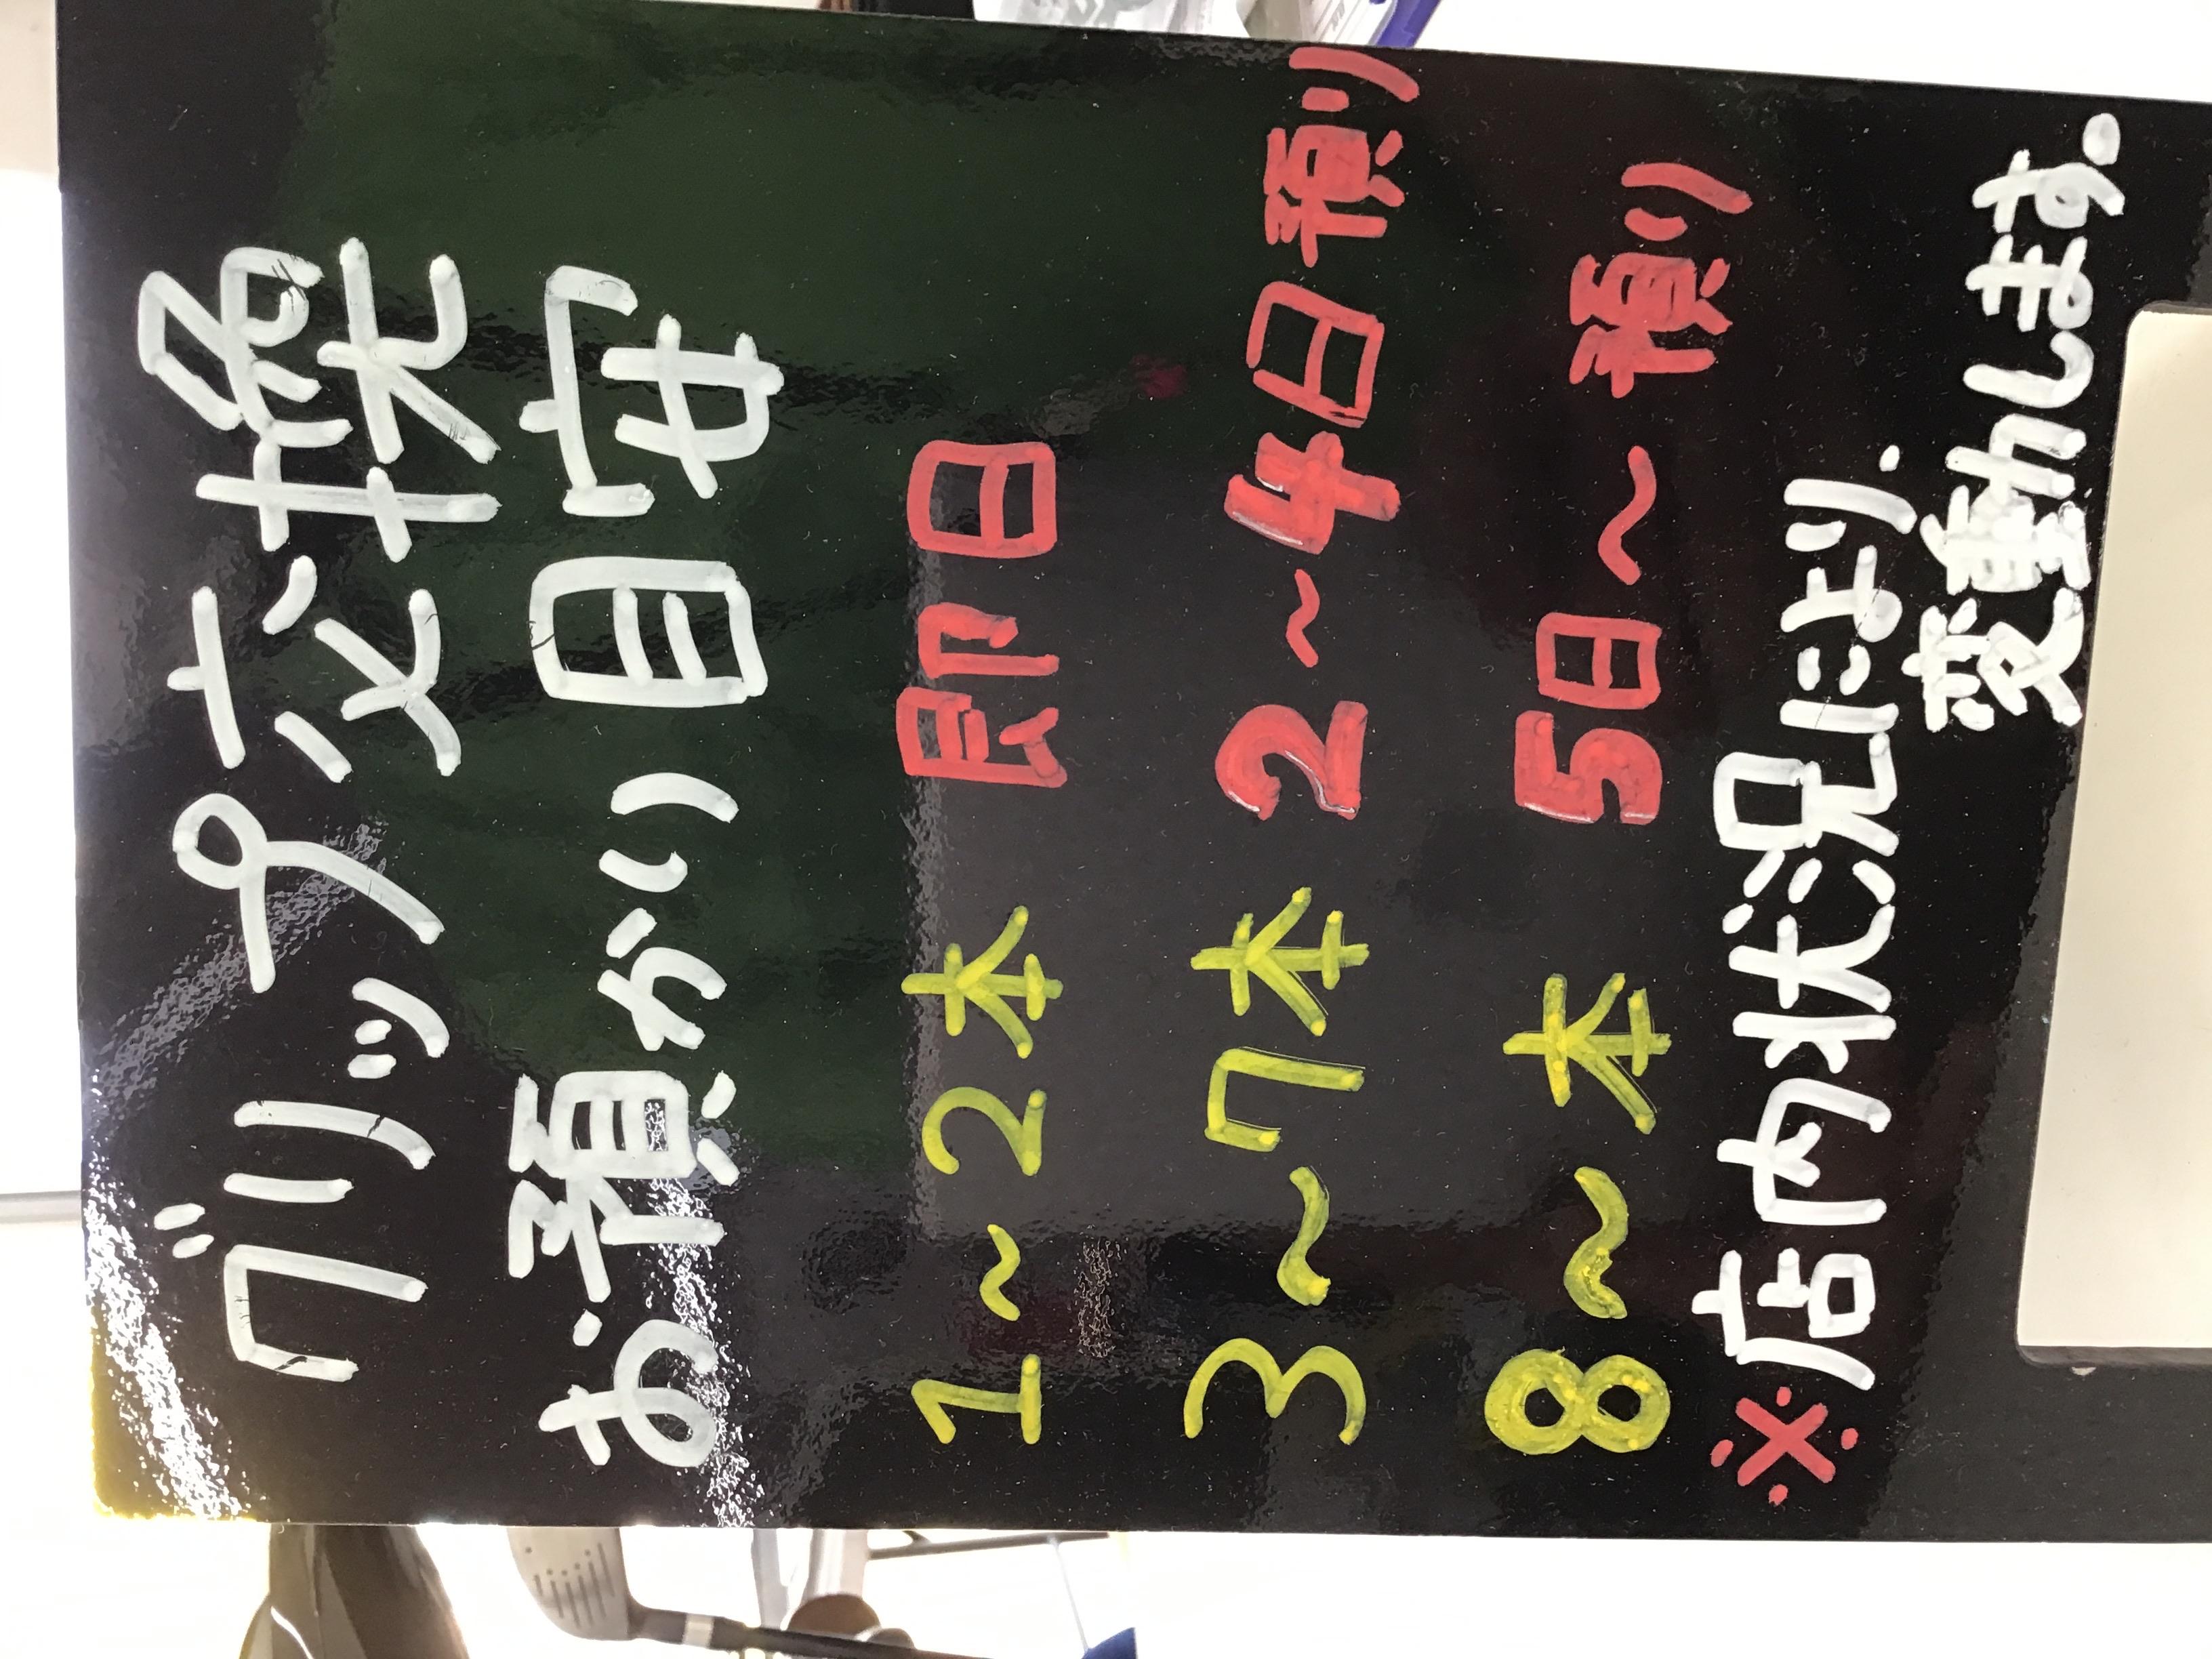 グリップ交換
お預かり目安
1~2本 即日
3~7本 2~4日預り
8~本 5日~預り
※店内状況により、
変動します。